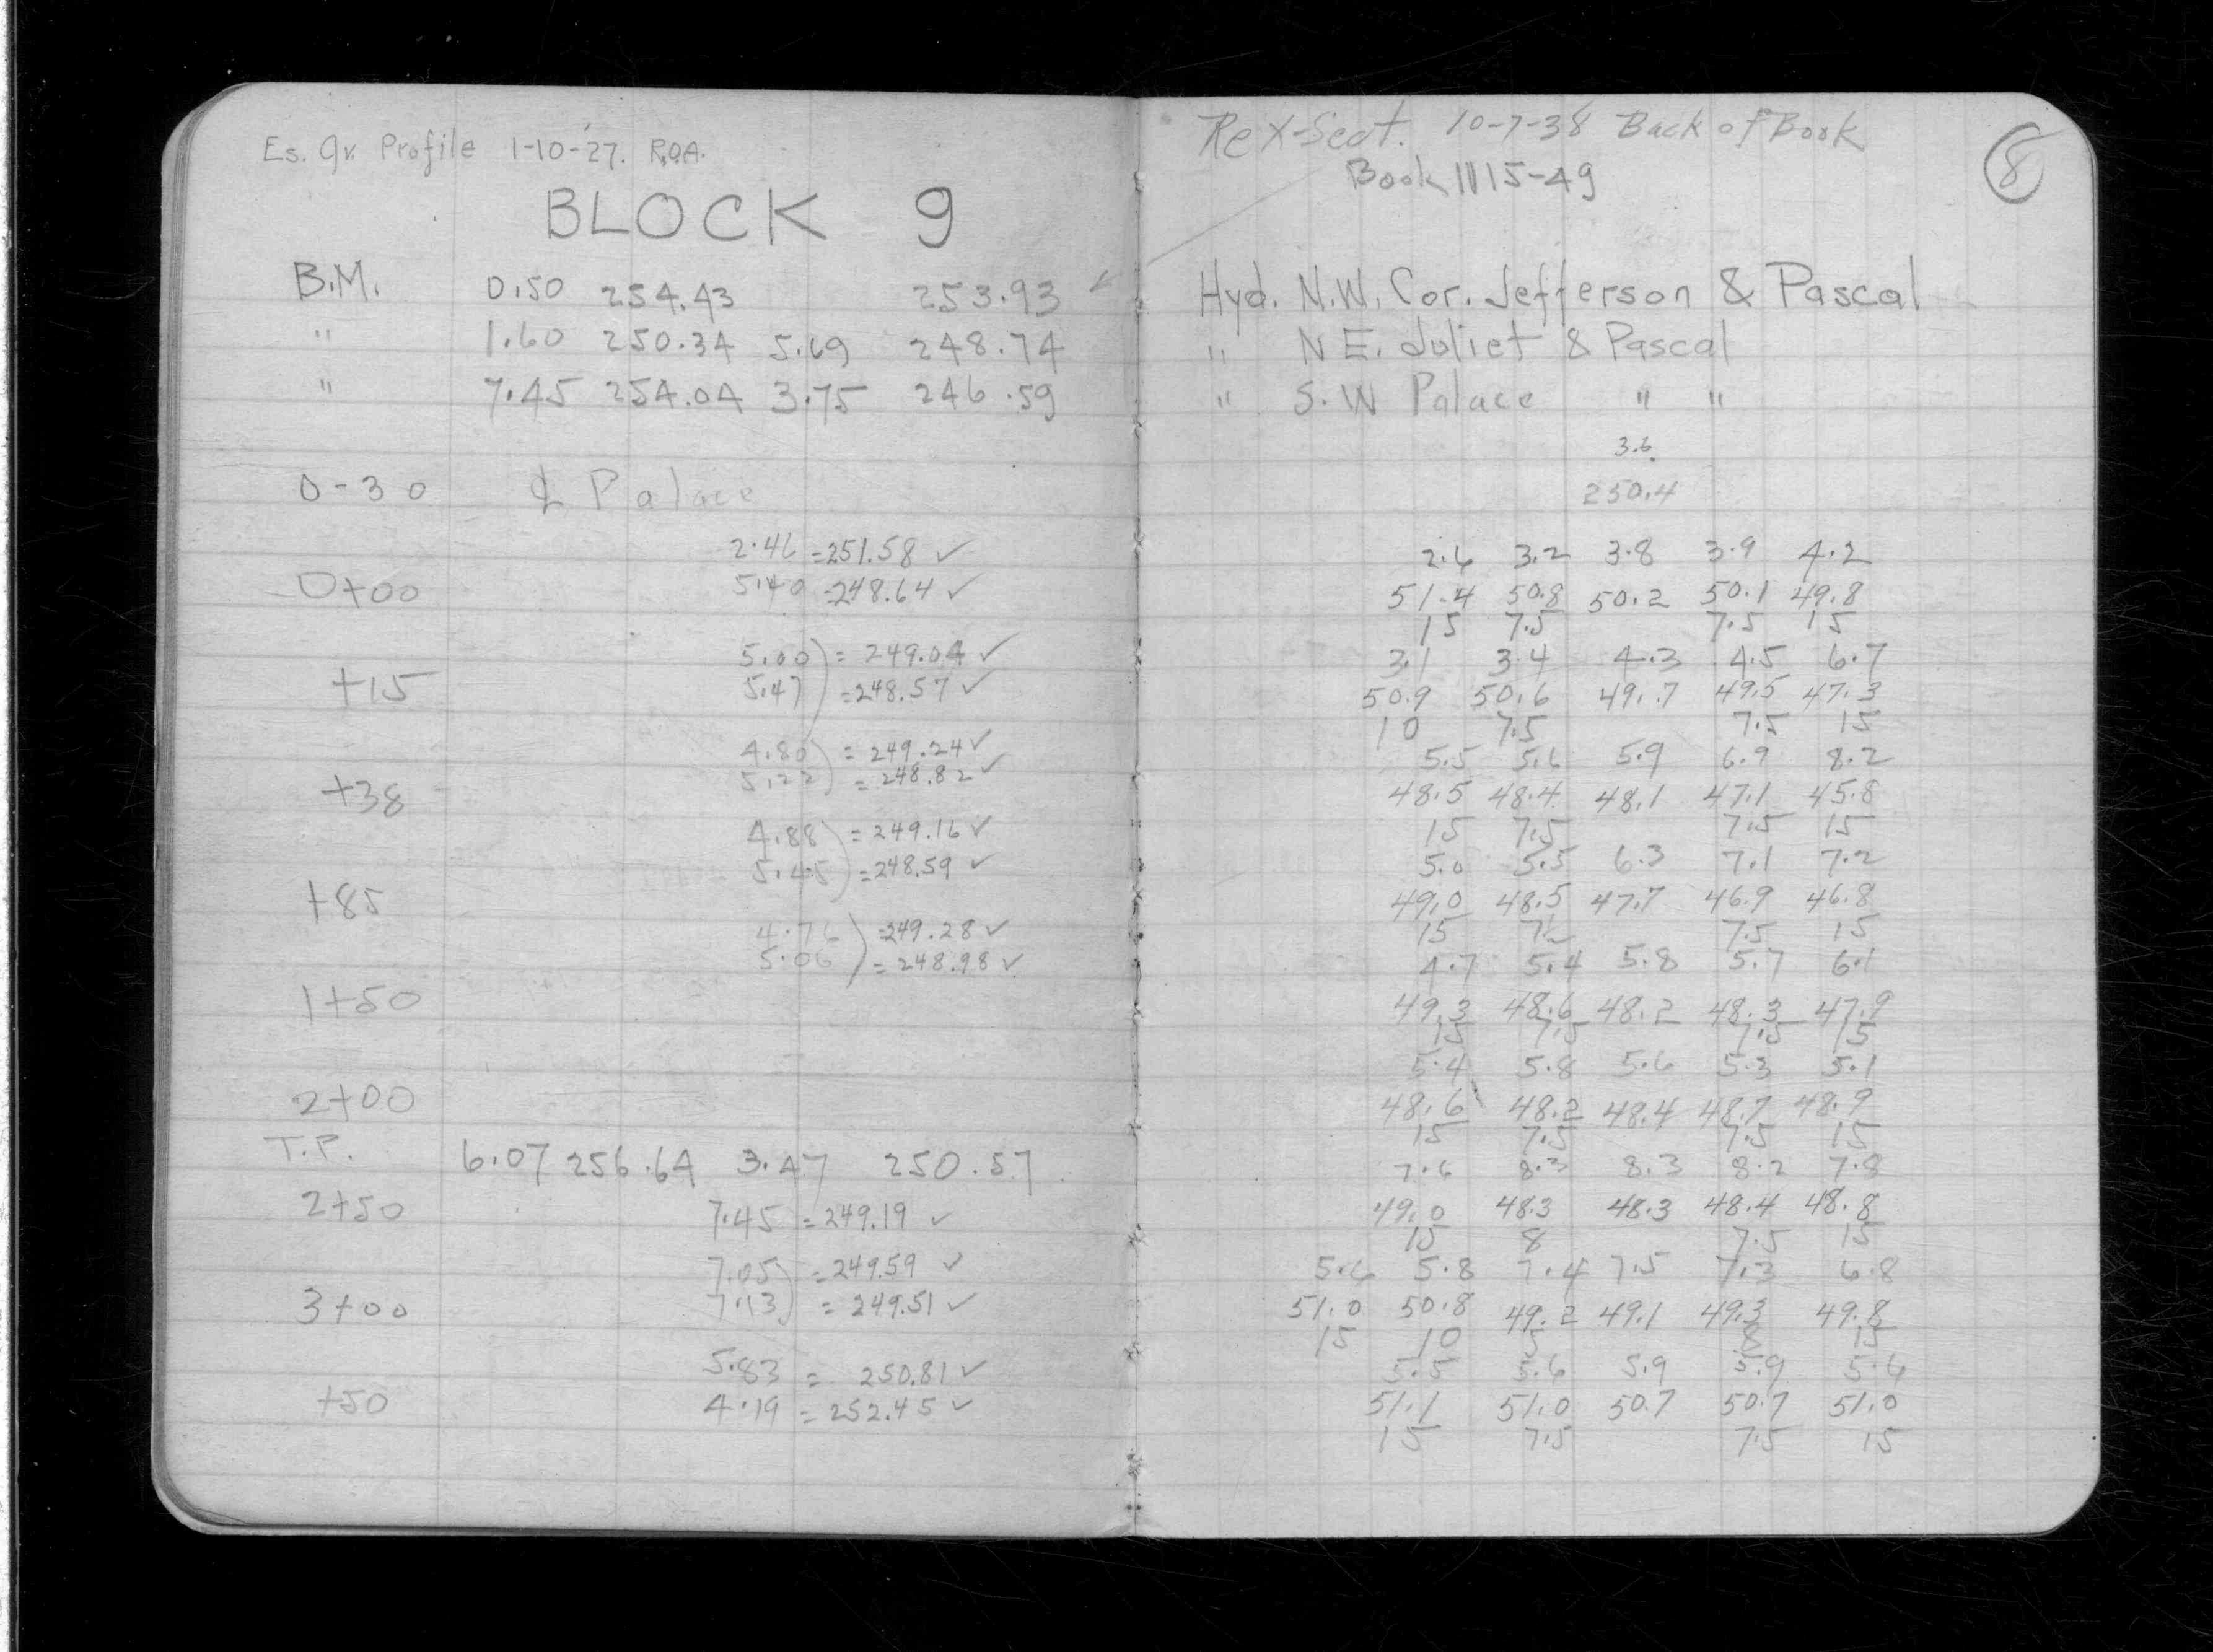 Es. Gr. Profile 1-10-'27. R.O.A.
BLOCK 9
B.M. 0.50 254.43 253.93
" 1.60 250.34 5.69 248.74
" 7.45 254.04 3.75 246.59
0-30 ℄ Palace
2.46 = 251.58 ✓
0+00 5.40 = 248.64 ✓
5.00) = 249.04 ✓
+15 5.47) = 248.57 ✓
4.80) = 249.24 ✓
5.22) = 248.82 ✓
+38
4.88) = 249.16 ✓
5.45) = 248.59 ✓
+85
4.76) = 249.28 ✓
5.06) = 248.98 ✓
1+50
2+00
T.P. 6.07 256.64 3.47 250.57
2+50 7.45 = 249.19 ✓
7.05) = 249.59 ✓
3+00 7.13) = 249.51 ✓
5.83 = 250.81 ✓
+50 4.19 = 252.45 ✓
Re X-Sect. 10-7-38 Back of Book
Book 1115-49
8
Hyd. N.W. Cor. Jefferson & Pascal
" N E. Juliet & Pascal
" S.W Palace " "
3.6
250.4
2.6 3.2 3.8 3.9 4.2
51.4 50.8 50.2 50.1 49.8
15 7.5 7.5 15
3.1 3.4 4.3 4.5 6.7
50.9 50.6 49.7 49.5 47.3
10 7.5 7.5 15
5.5 5.6 5.9 6.9 8.2
48.5 48.4 48.1 47.1 45.8
15 7.5 7.5 15
5.0 5.5 6.3 7.1 7.2
49.0 48.5 47.7 46.9 46.8
15 7.5 15
4.7 5.4 5.8 5.7 6.1
49.3 48.6 48.2 48.3 47.9
15 7.5 7.5 15
5.4 5.8 5.6 5.3 5.1
48.6 48.2 48.4 48.7 48.9
15 7.5 7.5 15
7.6 8.3 8.3 8.2 7.8
49.0 48.3 48.3 48.4 48.8
15 8 7.5 15
5.6 5.8 7.4 7.5 7.3 6.8
51.0 50.8 49.2 49.1 49.3 49.8
15 10 5 8 15
5.5 5.6 5.9 5.9 5.6
51.1 51.0 50.7 50.7 51.0
15 7.5 7.5 15